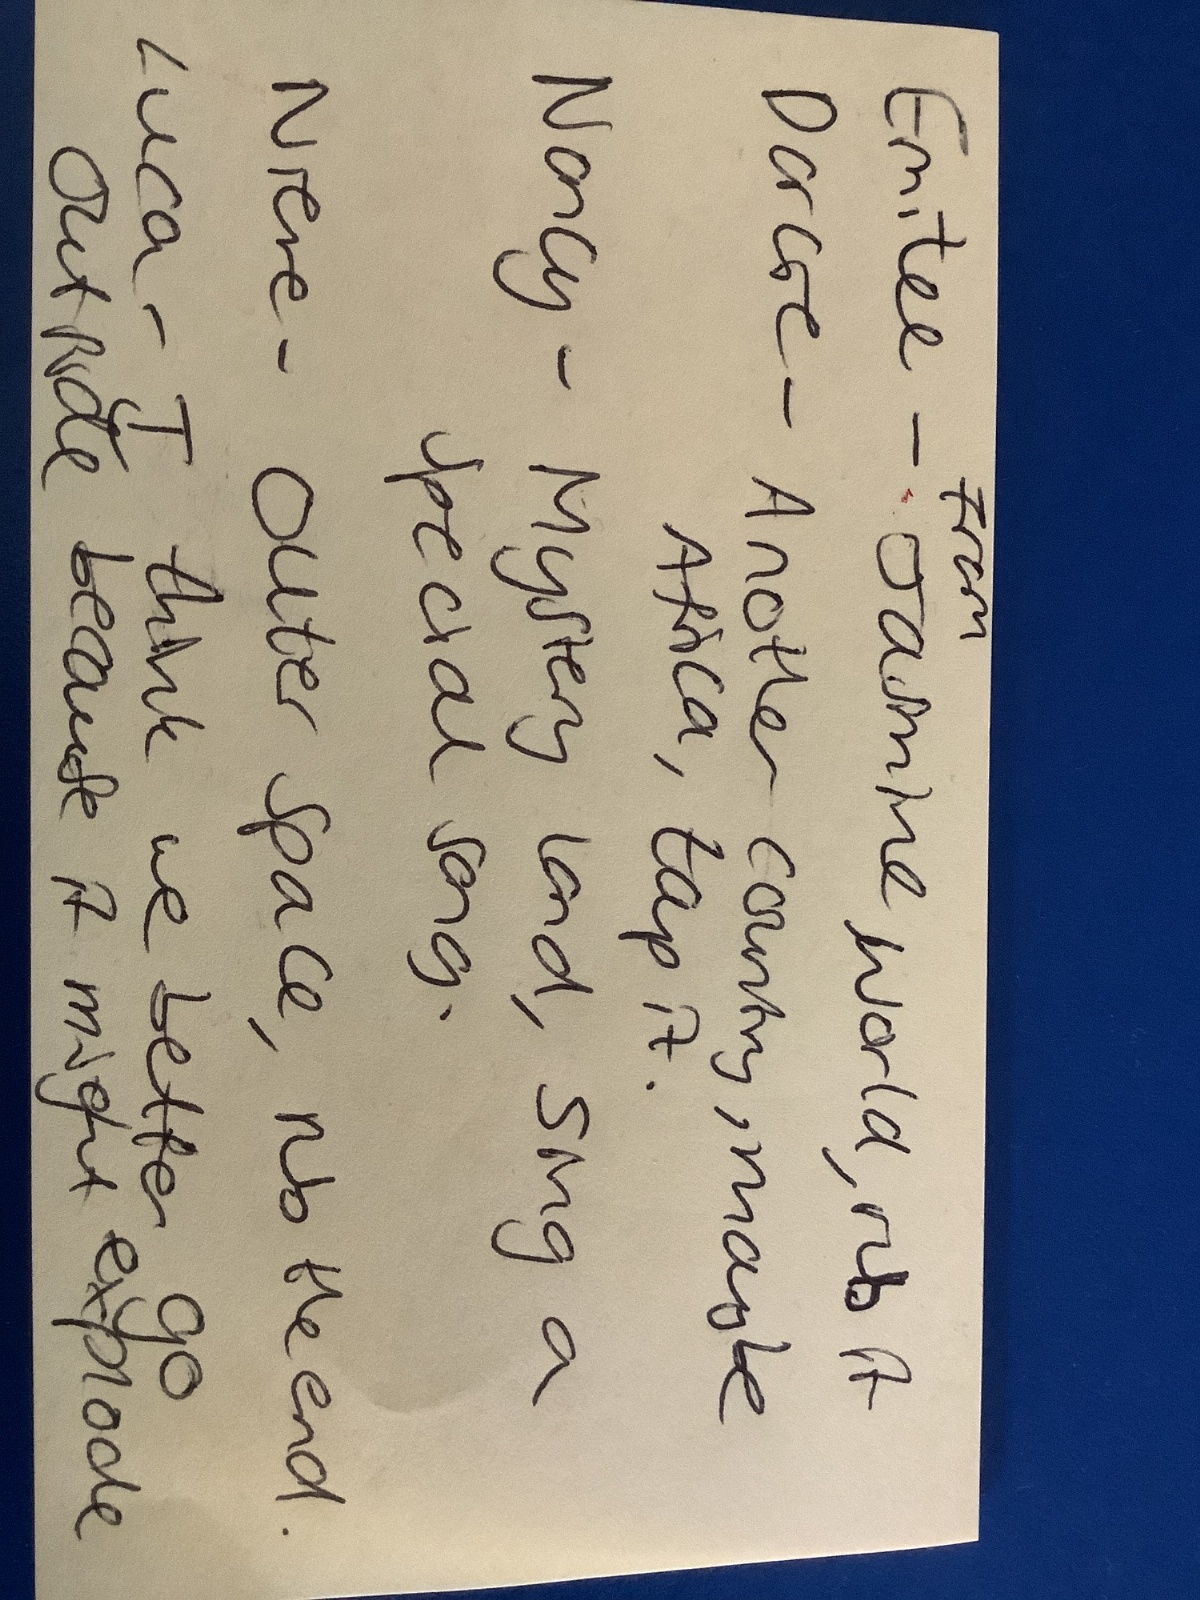 from
Emilee - Jasmine world, rub it
Darcie - Another country, maybe
Africa, tap it.
Nancy - Mystery land, sing a
special song.
Nieve - Outter space, rub the end.
Luca - I think we better go
outside because it might explode